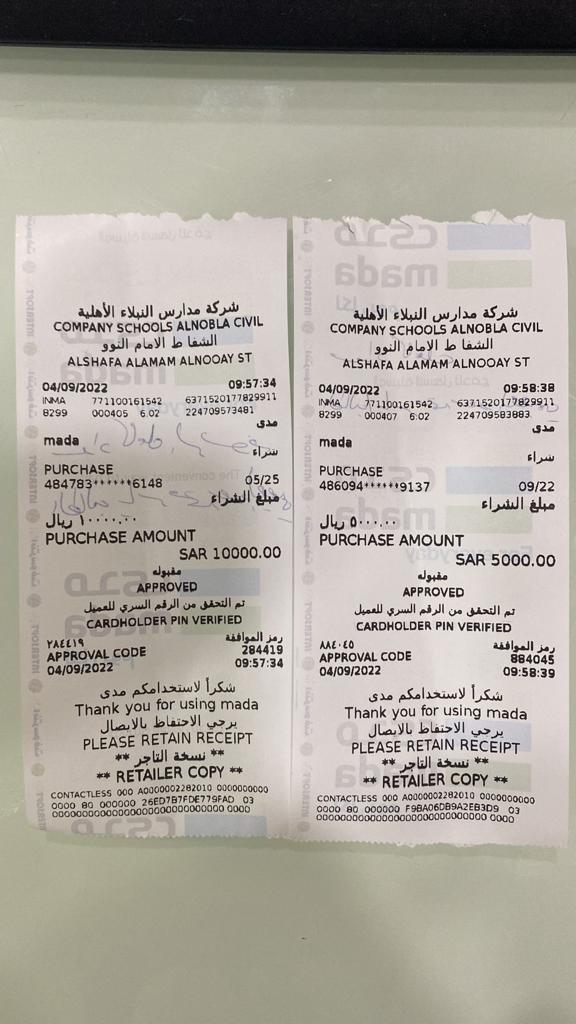 شركة مدارس النبلاء الأهلية
COMPANY SCHOOLS ALNOBLA CIVIL
الشفا ط الامام النوو
ALSHAFA ALAMAM ALNOOAY ST
04/09/2022 09:57:34
INMA 771100161542 6371520177829911
8299 000405 6.02 224709573481
مدى
mada
شراء
PURCHASE
484783******6148 05/25
مبلغ الشراء
١٠٠٠٠.٠٠ ريال
PURCHASE AMOUNT
SAR 10000.00
مقبوله
APPROVED
تم التحقق من الرقم السري للعميل
CARDHOLDER PIN VERIFIED
رمز الموافقة
٢٨٤٤١٩
APPROVAL CODE 284419
04/09/2022 09:57:34
شكراً لاستخدامكم مدى
Thank you for using mada
يرجي الاحتفاظ بالايصال
PLEASE RETAIN RECEIPT
** نسخة التاجر **
** RETAILER COPY **
CONTACTLESS 000 A0000002282010 0000000000
0000 80 000000 26ED7B7FDE779FAD 03
شركة مدارس النبلاء الأهلية
COMPANY SCHOOLS ALNOBLA CIVIL
الشفا ط الامام النوو
ALSHAFA ALAMAM ALNOOAY ST
04/09/2022 09:58:38
INMA 771100161542 6371520177829911
8299 000407 6.02 224709583883
مدى
mada
شراء
PURCHASE
486094******9137 09/22
مبلغ الشراء
٥٠٠٠.٠٠ ريال
PURCHASE AMOUNT
SAR 5000.00
مقبوله
APPROVED
تم التحقق من الرقم السري للعميل
CARDHOLDER PIN VERIFIED
رمز الموافقة
٨٨٤٠٤٥
APPROVAL CODE 884045
04/09/2022 09:58:39
شكراً لاستخدامكم مدى
Thank you for using mada
يرجي الاحتفاظ بالايصال
PLEASE RETAIN RECEIPT
** نسخة التاجر **
** RETAILER COPY **
CONTACTLESS 000 A0000002282010 0000000000
0000 80 000000 F9BA06DB9A2EB3D9 03